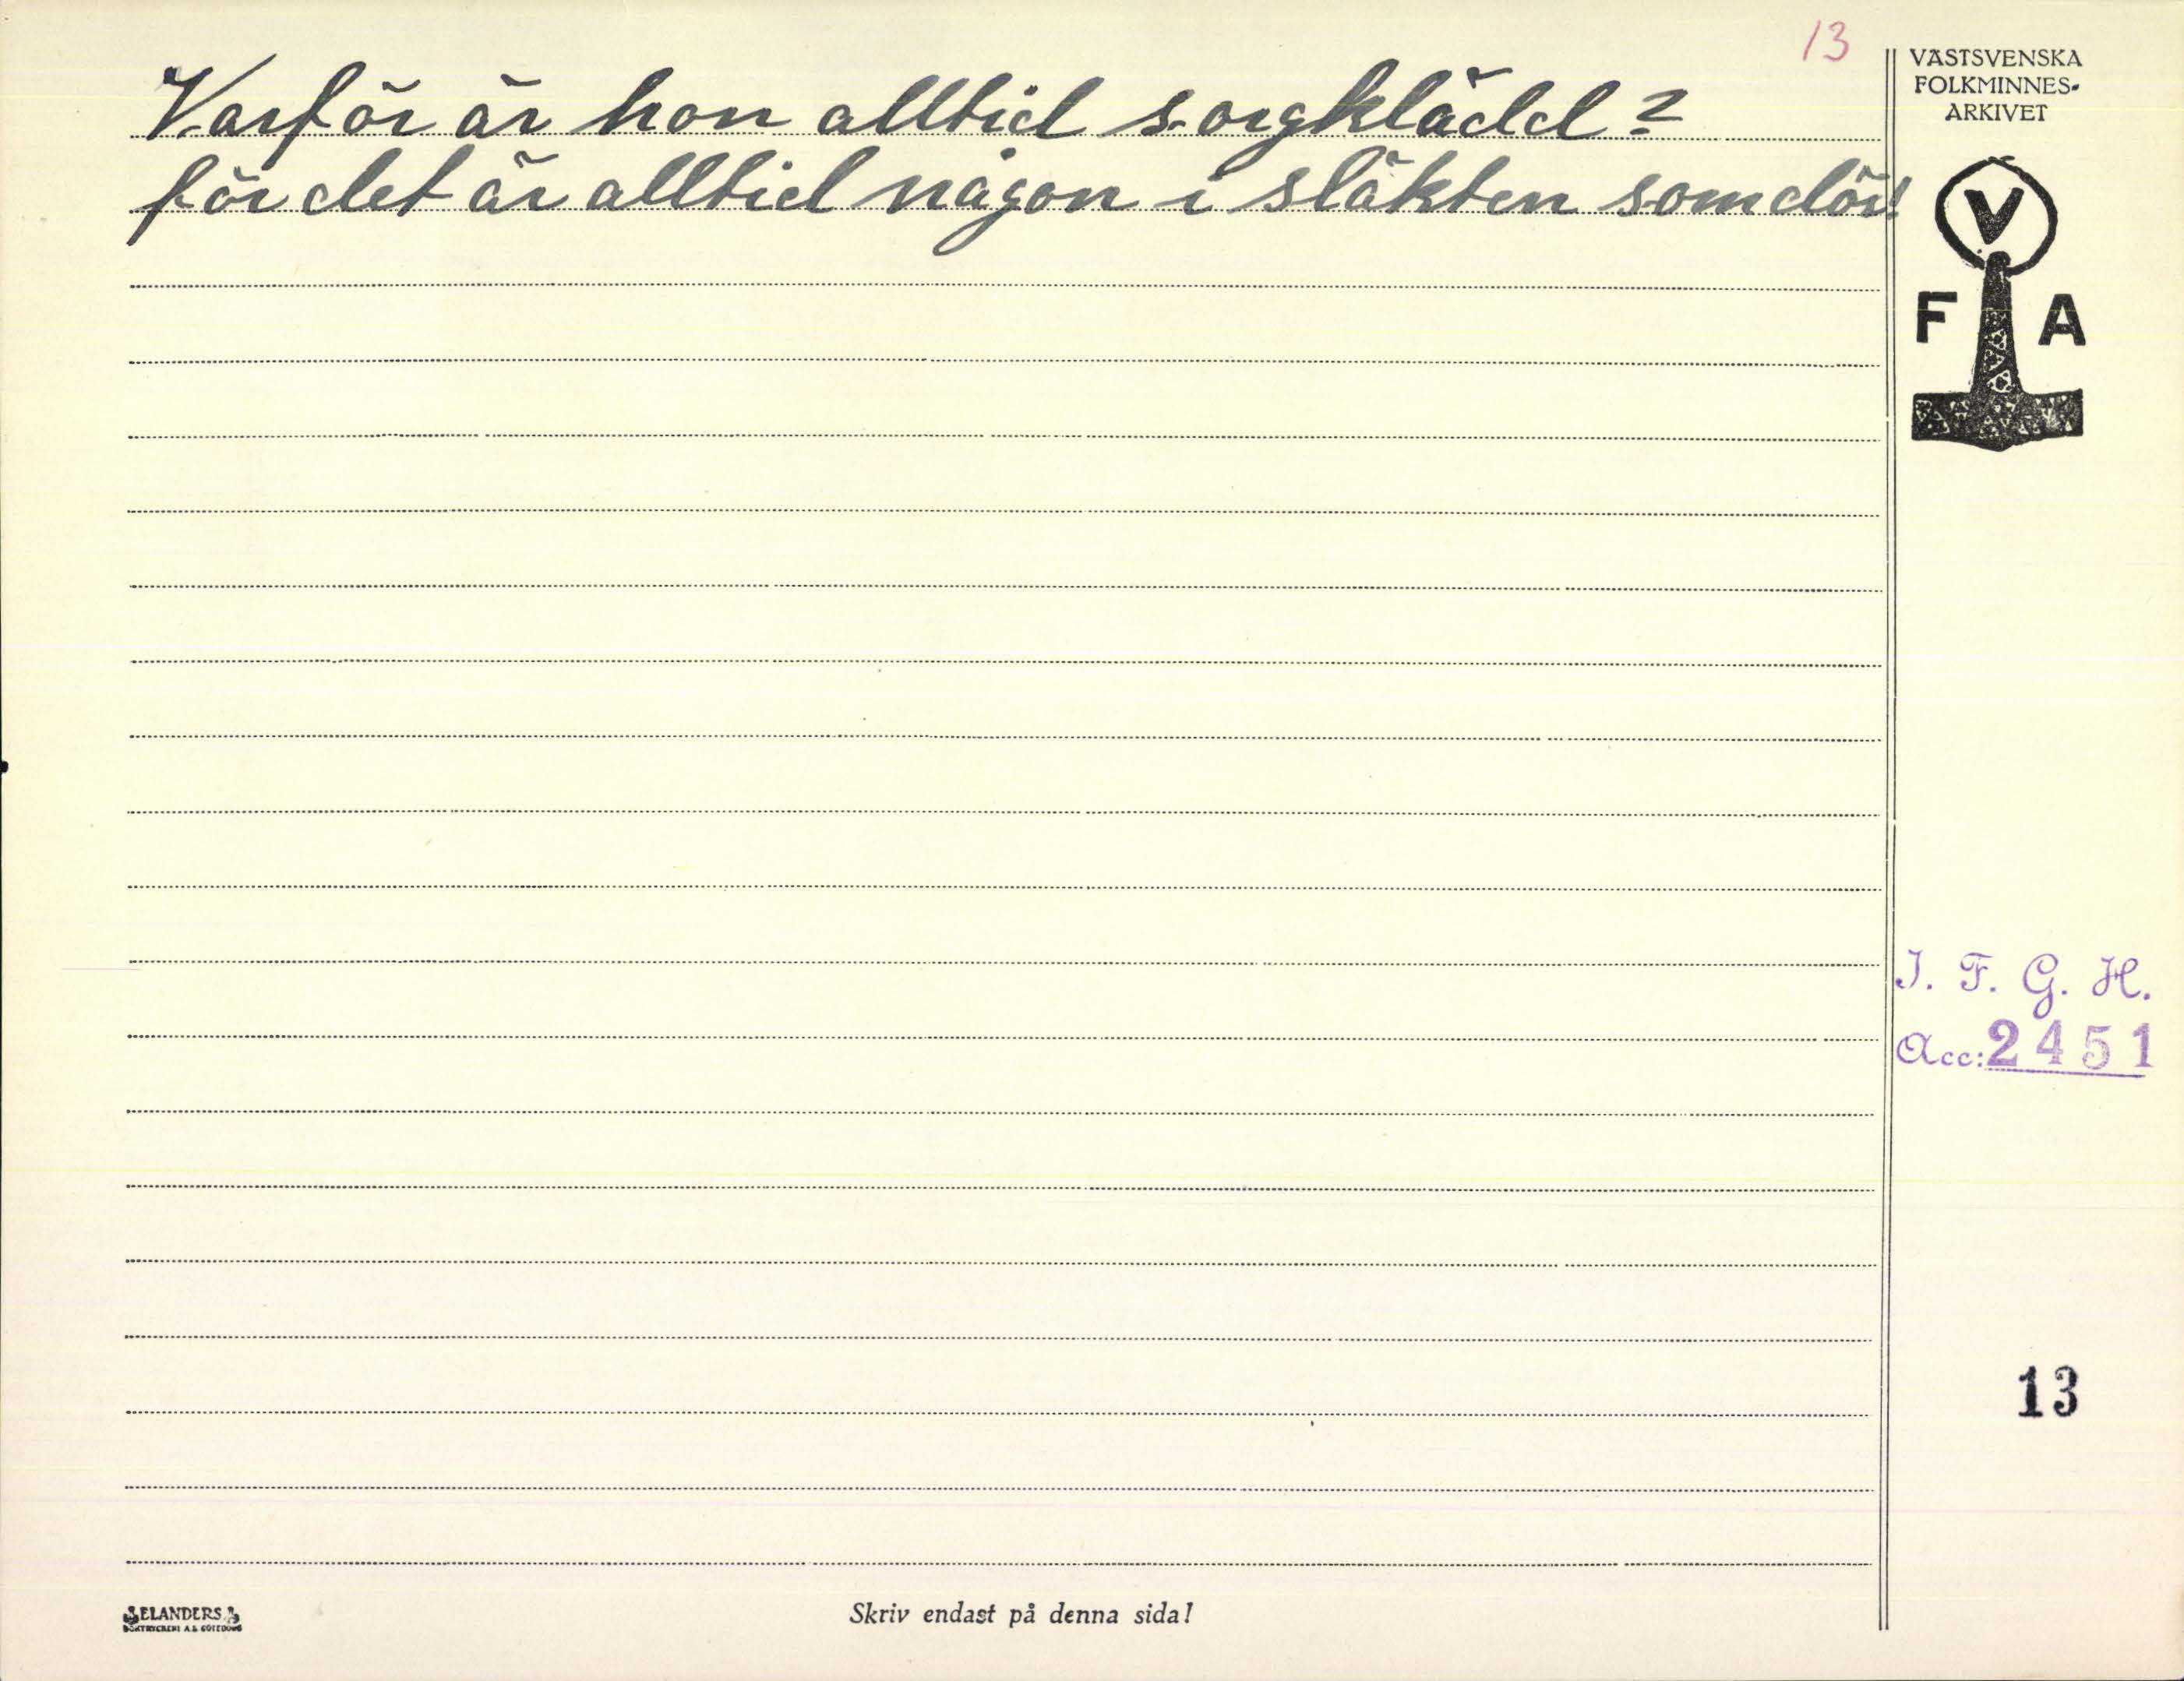 13
Varför är hon alltid sorgklädd?
för det är alltid någon i släkten som dör!
VÄSTSVENSKA
FOLKMINNES-
ARKIVET
V
F A
I. F. G. H.
Acc: 2451
13
ELANDERS
BOKTRYCKERI A.B. GÖTEBORG
Skriv endast på denna sida!